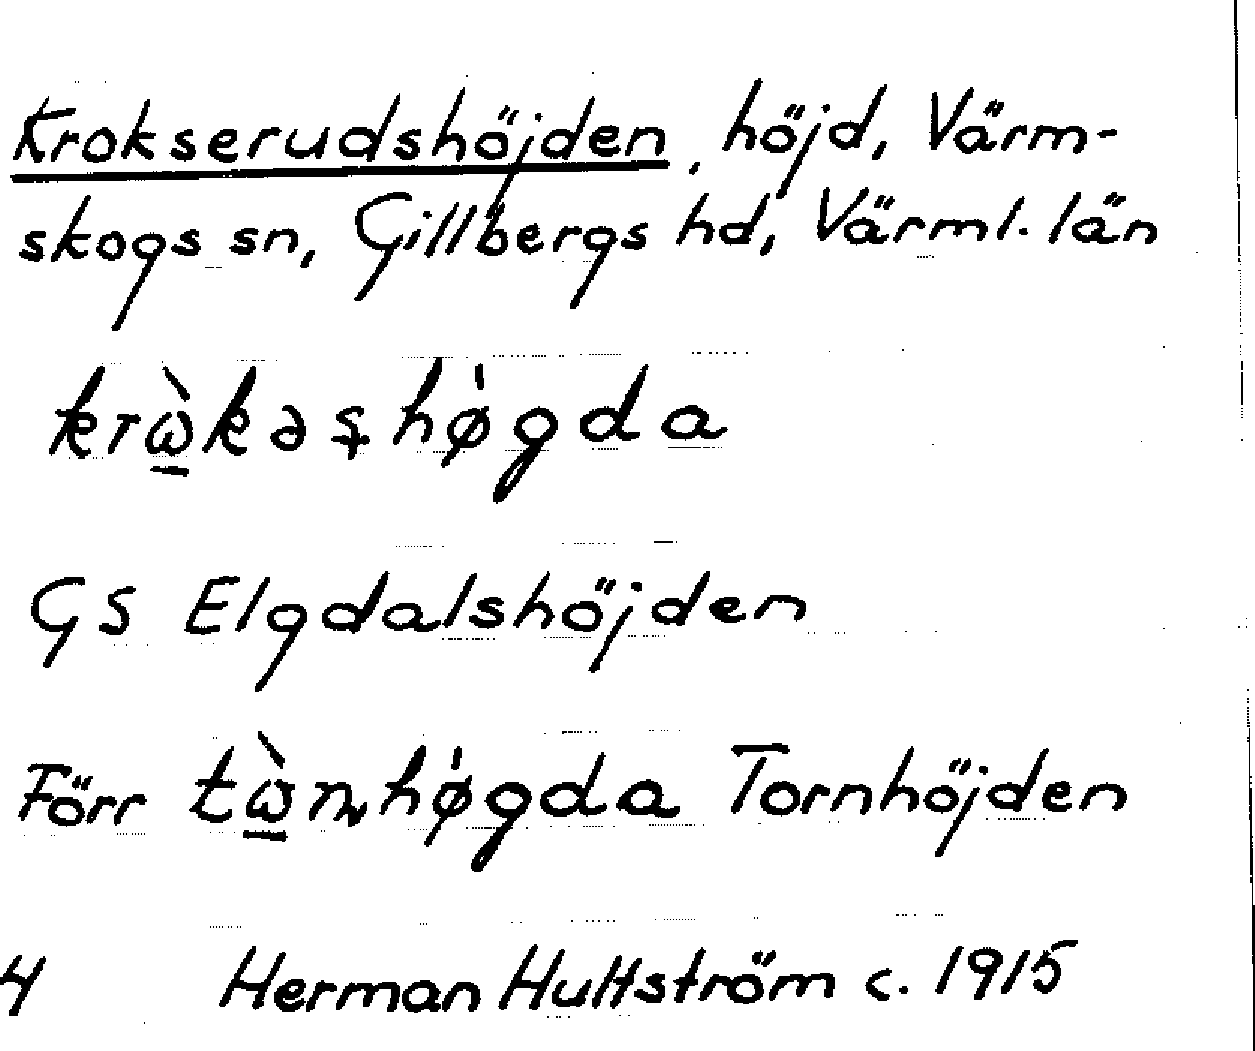 Krokserudshöjden, höjd, Värm-
skogs sn, Gillbergs hd, Värml. län
krὼ̱kəşhø̍gda
GS Elgdalshöjden
Förr tὼ̱ɳhø̍gda Tornhöjden
4 Herman Hultström c. 1915